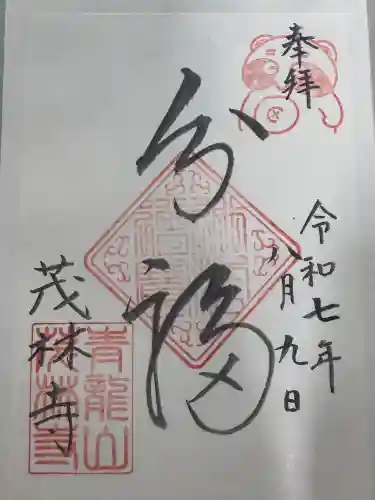 奉拝
令和七年
八月九日
分福
茂林寺
青龍山
茂林寺